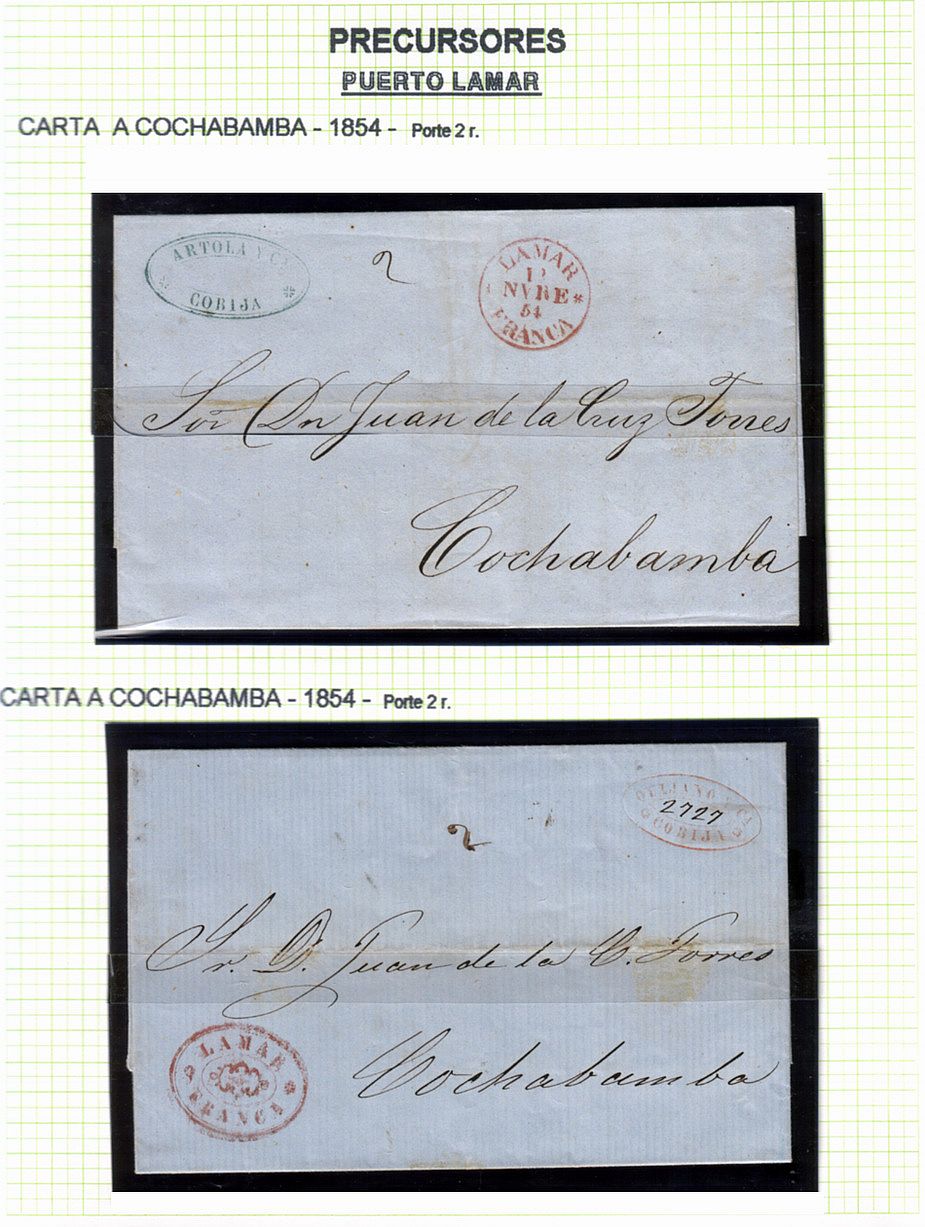 PRECURSORES
PUERTO LAMAR
CARTA A COCHABAMBA - 1854 - Porte 2 r.
ARTOLA Y Ca
COBIJA
2
LAMAR
NVRE
54
FRANCA
Sor Dn Juan de la Cruz Torres
Cochabamba
CARTA A COCHABAMBA - 1854 - Porte 2 r.
2727
COBIJA
2
Sr. D. Juan de la C. Torres
LAMAR
FRANCA
Cochabamba